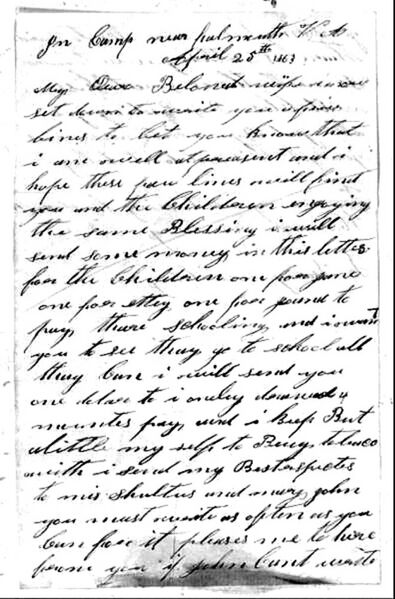 In Camp near falmouth V A
April 25th 1863
My Dear Beloved wife i now
set down to write you a few
lines to let you know that
i am well at pressent and i
hope these few lines will find
you and the Children enjoying
the same Blessing i will
send some money in this letter
for the Children one for
one for one for to
pay there schooling and i want
you to see thay go to school all
thay Can i will send you
one to i onley drawed 4
mountes pay and i kep But
alittle my self to Buy tobaco
with i send my Bestrespctes
to mis Shultus and mary john
you must write as often as you
Can for it pleases me to here
from you if john Cant write